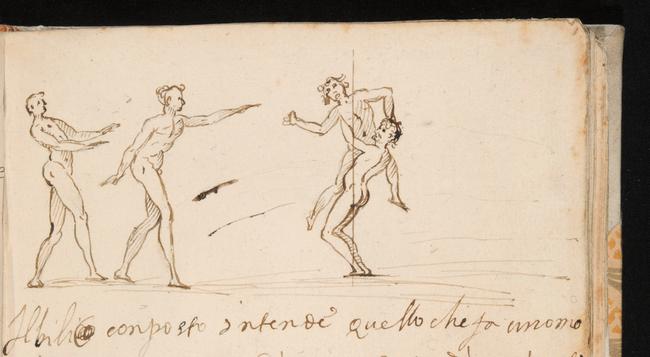 Il bilico conposto s'intende quello che fa un omo